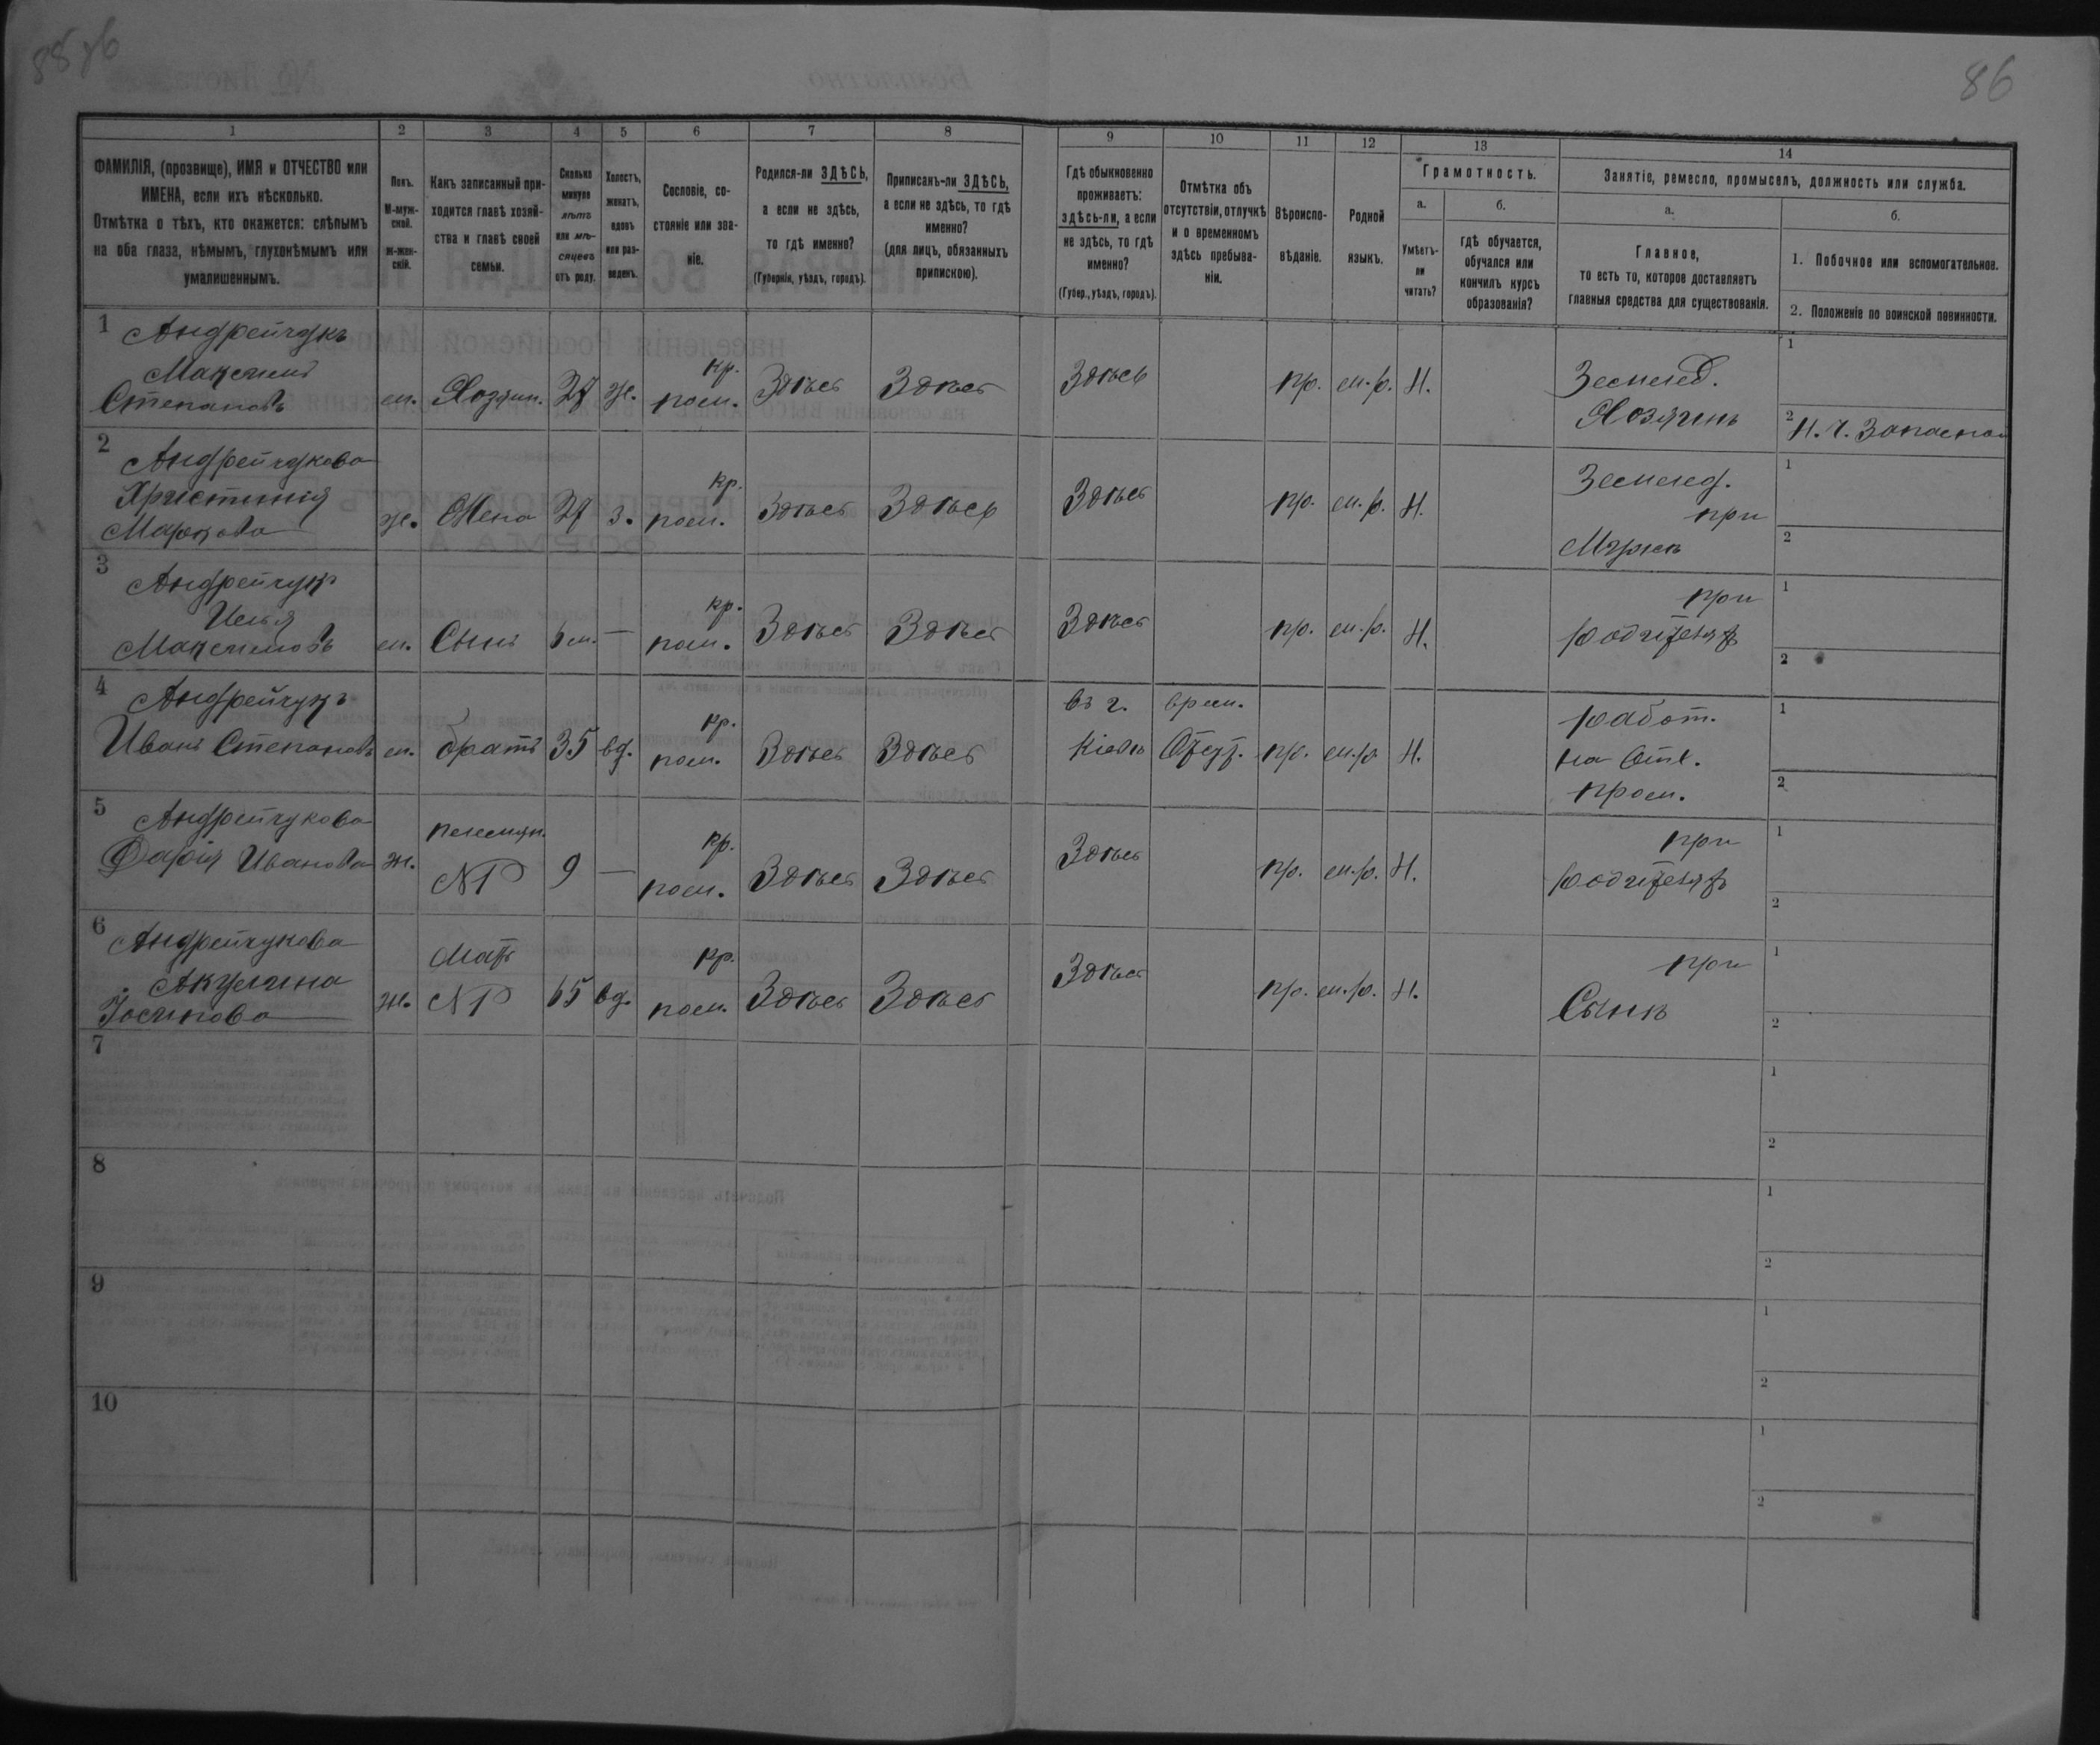 86
1 2 3 4 5 6 7 8 9 10 11 12 13 14
ФАМИЛІЯ, (прозвище), ИМЯ и ОТЧЕСТВО или
ИМЕНА, если ихъ нѣсколько.
Отмѣтка о тѣхъ, кто окажется: слѣпымъ
на оба глаза, нѣмымъ, глухонѣмымъ или
умалишеннымъ.
Полъ.
М-муж-
ской.
Ж-жен-
скій.
Какъ записанный при-
ходится главѣ хозяй-
ства и главѣ своей
семьи.
Сколько
минуло
лѣтъ
или мѣ-
сяцевъ
отъ роду.
Холостъ,
женатъ,
вдовъ
или раз-
веденъ.
Сословіе, со-
стояніе или зва-
ніе.
Родился-ли ЗДѢСЬ,
а если не здѣсь,
то гдѣ именно?
(Губернія, уѣздъ, городъ).
Приписанъ-ли ЗДѢСЬ,
а если не здѣсь, то гдѣ
именно?
(для лицъ, обязанныхъ
припискою).
Гдѣ обыкновенно
проживаетъ:
здѣсь-ли, а если
не здѣсь, то гдѣ
именно?
(Губер., уѣздъ, городъ).
Отмѣтка объ
отсутствіи, отлучкѣ
и о временномъ
здѣсь пребыва-
ніи.
Вѣроиспо-
вѣданіе.
Родной
языкъ.
Грамотность.
а.
Умѣетъ-
ли
читать?
б.
гдѣ обучается,
обучался или
кончилъ курсъ
образованія?
Занятіе, ремесло, промыселъ, должность или служба.
а.
Главное,
то есть то, которое доставляетъ
главныя средства для существованія.
б.
1. Побочное или вспомогательное.
2. Положеніе по воинской повинности.
1 Андрейчукъ
Максимъ
Степановъ
м. Хозяин. 27 ж. кр.
пом. Здѣсь Здѣсь Здѣсь пр. м.р. Н. Землед.
Хозяинъ
1
2 Н.Ч. Запасной
2 Андрейчукова
Христинія
Маркова
ж. Жена 27 З. кр.
пом. Здѣсь Здѣсь Здѣсь пр. м.р. Н. Землед.
при
Мужѣ
1
2
3 Андрейчукъ
Илья
Максимовъ
м. Сынъ 6 м. — кр.
пом. Здѣсь Здѣсь Здѣсь пр. м.р. Н. при
родителяхъ
1
2
4 Андрейчукъ
Иванъ Степановъ
м. братъ 35 вд. кр.
пом. Здѣсь Здѣсь въ г.
Кіевѣ врем.
Отсут. пр. м.р. Н. работ.
на Отх.
пром.
1
2
5 Андрейчукова
Дарія Иванова
ж. племян.
№1 9 — кр.
пом. Здѣсь Здѣсь Здѣсь пр. м.р. Н. при
родителяхъ
1
2
6 Андрейчукова
Акулина
Іосипова
ж. Мать
№1 65 вд. кр.
пом. Здѣсь Здѣсь Здѣсь пр. м.р. Н. при
Сынѣ
1
2
7
1
2
8
1
2
9
1
2
10
1
2